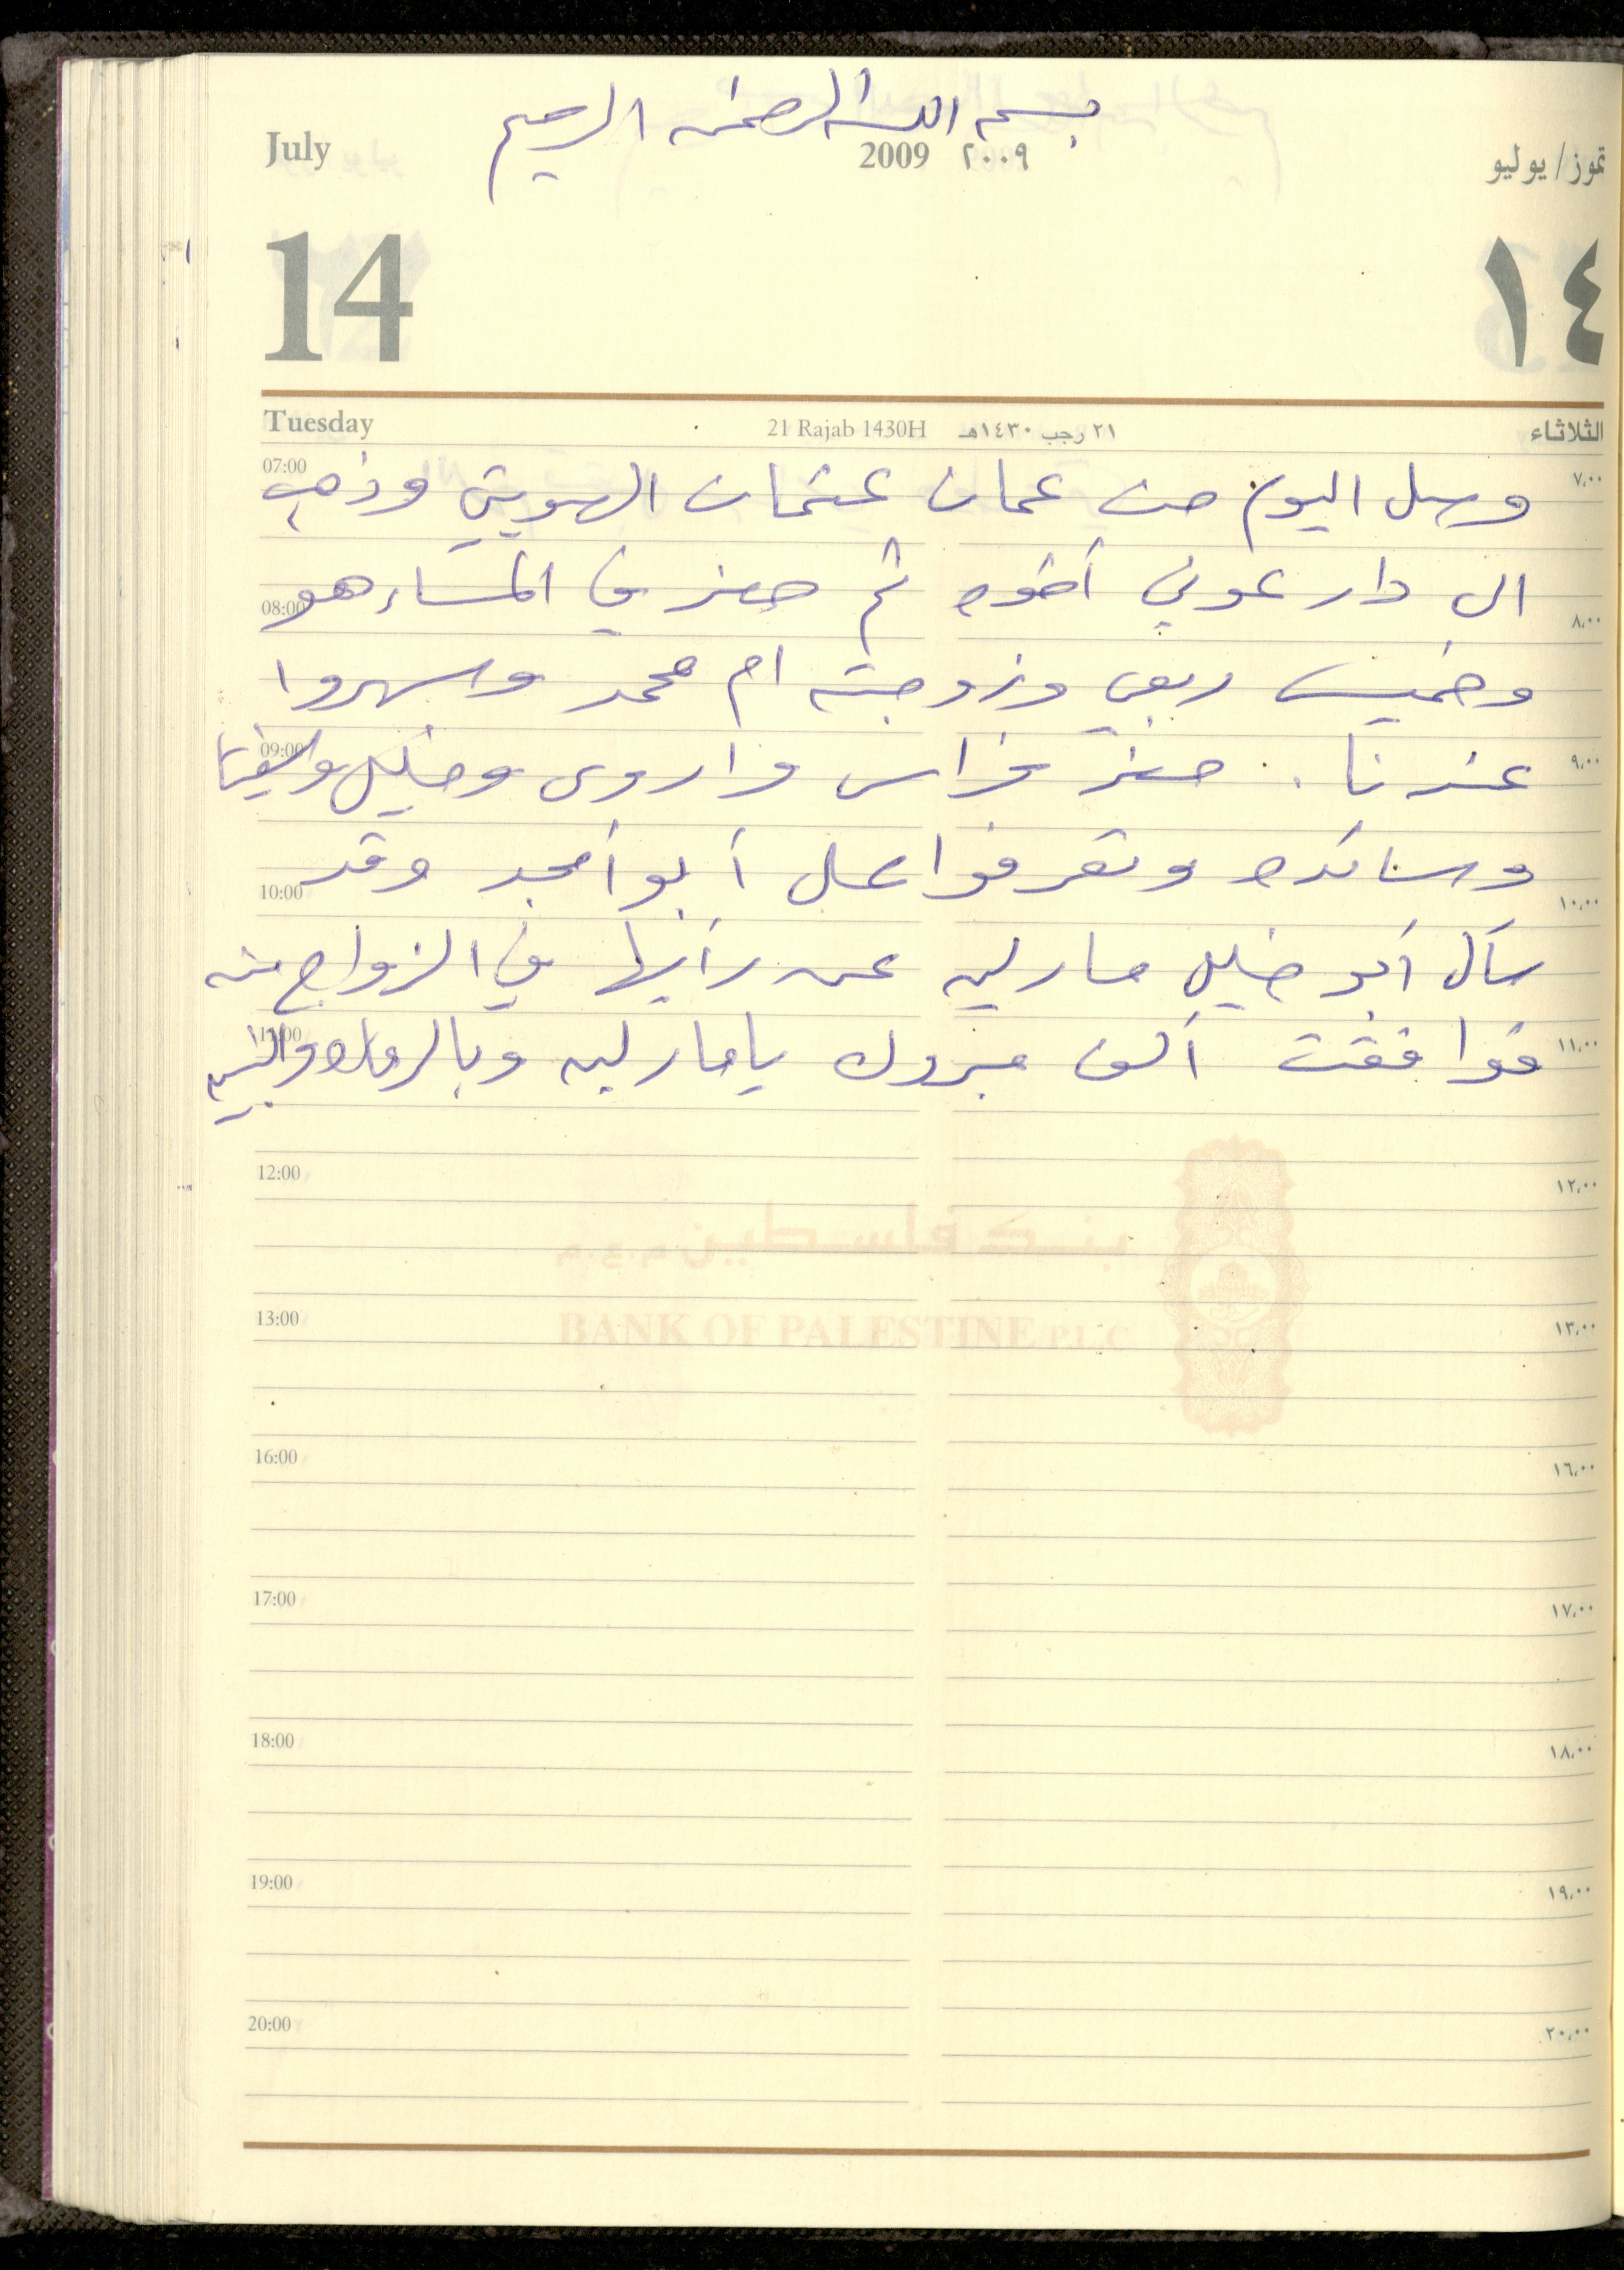 بسم الله الرحمن الرحيم
July
2009 ٢٠٠٩
تموز/يوليو
14
١٤
Tuesday
21 Rajab 1430H ٢١ رجب ١٤٣٠هـ
الثلاثاء
07:00 ٧,٠٠
وصل اليوم من عمان عثمان الهويتي وذهب
الى دار عوني أخوه ثم حضر في المساء هو
08:00 ٨,٠٠
وخميس ربعي وزوجته ام محمد وسهروا
09:00 ٩,٠٠
عندنا . حضر فراس واروى وخليل
10:00 ١٠,٠٠
وساندره وتعرفوا على أبو أمجد وقد
سأل أبو خليل مارليه عن رأيها في الزواج منه
11:00 ١١,٠٠
فوافقت ألف مبروك يا مارليه وبالرفاه والبنين
12:00 ١٢,٠٠
بنك فلسطين م.ع.م
13:00 ١٣,٠٠
BANK OF PALESTINE P.L.C
16:00 ١٦,٠٠
17:00 ١٧,٠٠
18:00 ١٨,٠٠
19:00 ١٩,٠٠
20:00 ٢٠,٠٠